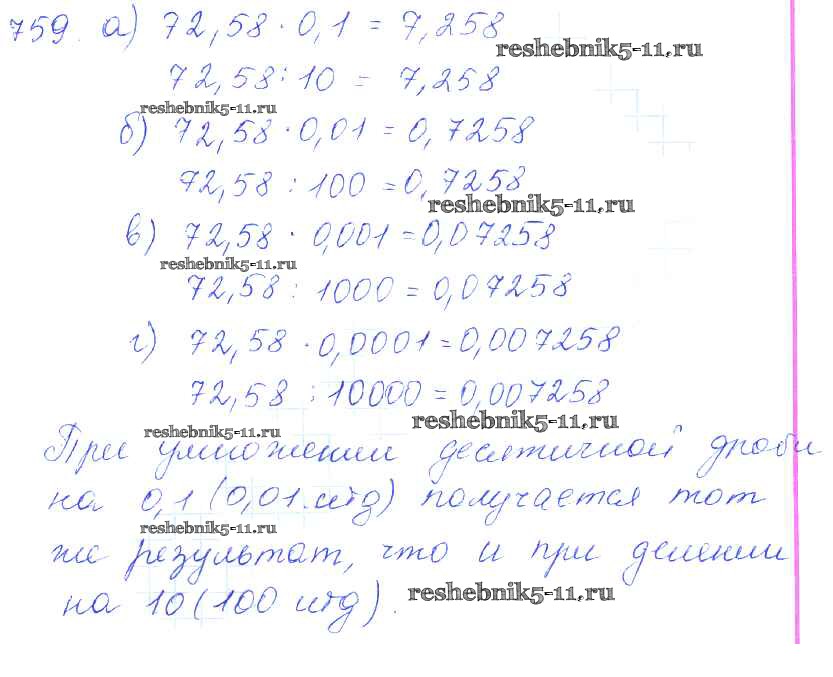 759. а) 72,58 · 0,1 = 7,258
reshebnik5-11.ru
72,58 : 10 = 7,258
reshebnik5-11.ru
б) 72,58 · 0,01 = 0,7258
72,58 : 100 = 0,7258
reshebnik5-11.ru
в) 72,58 · 0,001 = 0,07258
reshebnik5-11.ru
72,58 : 1000 = 0,07258
г) 72,58 · 0,0001 = 0,007258
72,58 : 10000 = 0,007258
reshebnik5-11.ru
reshebnik5-11.ru
При умножении десятичной дроби
на 0,1 (0,01.итд) получается тот
reshebnik5-11.ru
же результат, что и при делении
на 10 (100 итд).
reshebnik5-11.ru